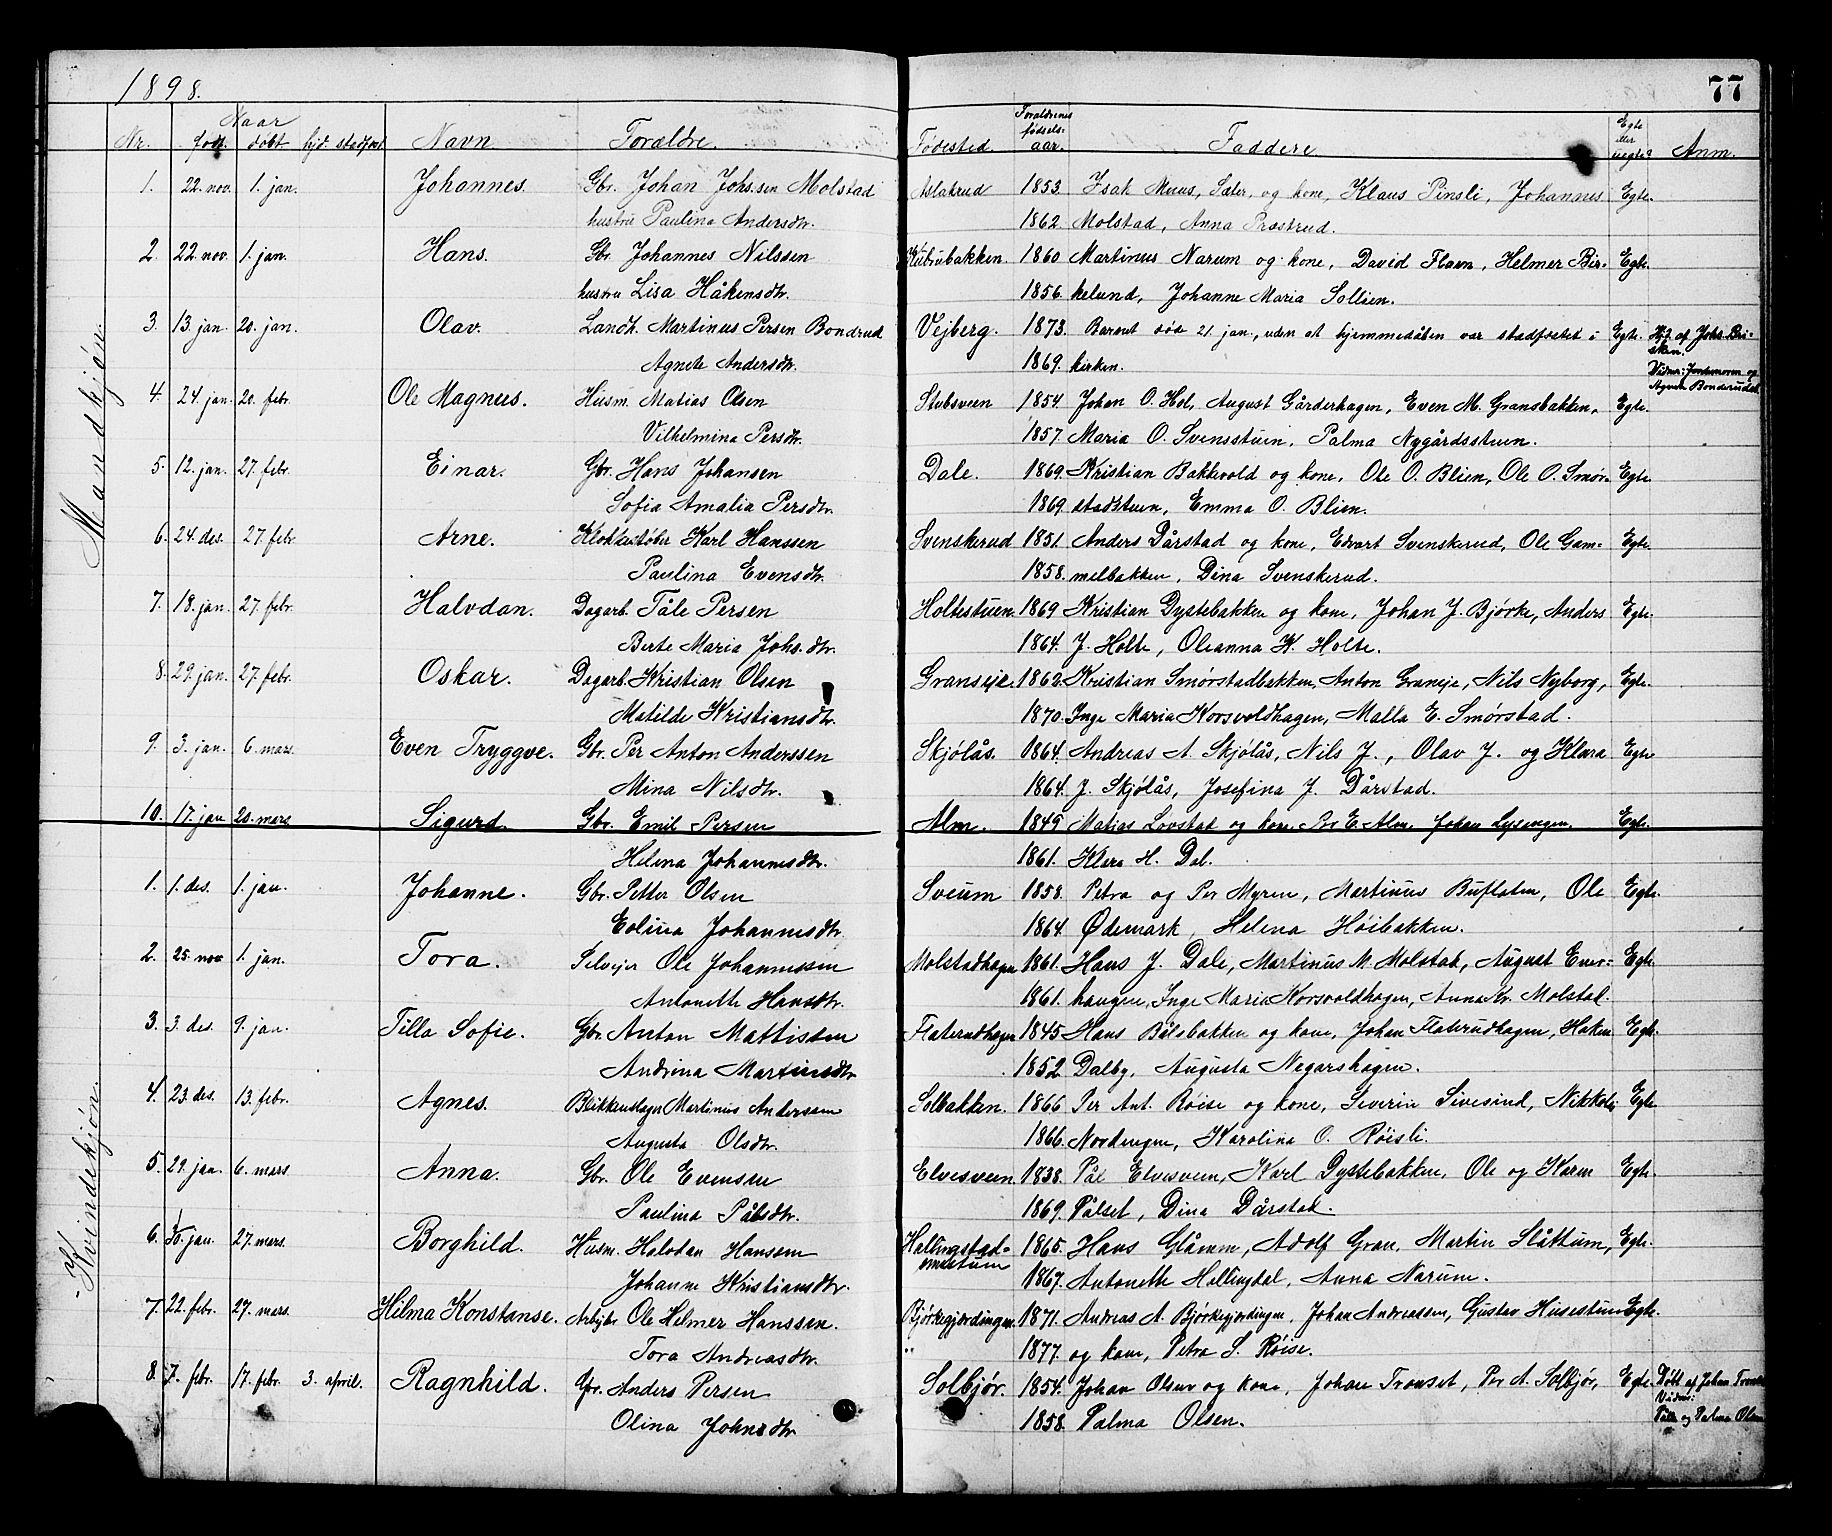 1898.
77
Nr. Naar født. døbt hjd. stadfæst Navn Forældre. Fødested. Forældrenes fødsels-aar. Faddere Egte eller uegte? Anm.
Mandkjøn.
1. 22. nov. 1. jan. Johannes. Gbr. Johan Johs.sen Molstad Aslakrud 1853. Isak Muus, Sæter, og kone, Klaus Pinsli, Johannes Egte.
hustru Paulina Andersdtr. 1862. Molstad, Anna Præstrud.
2. 22. nov. 1. jan. Hans. Gbr. Johannes Nilssen Kubrubakken. 1860. Martinus Narum og kone, David Flaen, Helmer Bir- Egte.
hustru Lisa Håkensdtr. 1856. kelund, Johanne Maria Sollien.
3. 13. jan. 20. jan. Olav. Landh. Martinus Persen Bondrud Vejberg. 1873. Barnet død 21 jan., uden at hjemmedåben var stadfæstet i Egte. Hj. af Johs. Bri-
sken.
Agnete Andersdtr. 1869. kirken. Vidner: Jordemoren og
Agnete Bonderud
4. 24. jan. 20. febr. Ole Magnus. Husm. Matias Olsen Stubsveen 1854. Johan O. Hol, August Gårderhagen, Even M. Gransbakken, Egte.
Vilhelmina Persdtr. 1857. Maria O. Svensstuen, Palma Nygårdsstuen.
5. 12. jan. 27. febr. Einar. Gbr. Hans Johansen Dale. 1869. Kristian Bakkevold og kone, Ole O. Blien, Ole O. Smør- Egte.
Sofia Amalia Persdtr. 1869. stadstuen, Emma O. Blien.
6. 24. des. 27. febr. Arne. Klokkestøber Karl Hanssen Svenskerud 1851. Anders Dårstad og kone, Edvart Svenskerud, Ole Gam- Egte
Paulina Evensdtr. 1858. melbakken, Dina Svenskerud.
7. 18. jan. 27. febr. Halvdan. Dagarb. Tåle Persen Holtestuen. 1869 Kristian Dystebakken og kone, Johan J. Bjørke, Anders Egte.
Berte Maria Johs.dtr. 1864. J. Holte, Oleanna H. Holte.
8. 29. jan. 27. febr. Oskar. Dagarb. Kristian Olsen Graneeje. 1862. Kristian Smørstadbakken, Anton Graneje, Nils Nyborg, Egte.
Matilde Kristiansdtr. 1870. Inge Maria Korsvoldhagen, Malla E. Smørstad.
9. 3. jan. 6. mars. Even Tryggve. Gbr. Per Anton Anderssen Skjølås. 1864. Andreas A. Skjølås, Nils J., Olav J. og Klara Egte
Mina Nilsdtr. 1864. J. Skjølås, Josefina J. Dårstad.
10. 17. jan 20. mars. Sigurd. Gbr. Emil Persen Alm. 1849 Matias Lovstad og kone, Per E. Alm, Johan Lysengen. Egte.
Helena Johannesdtr. 1861. Klara H. Dal.
Kvindekjøn.
1. 1. des. 1. jan. Johanne. Gbr. Petter Olsen Sveum 1858. Petra og Per Myren, Martinus Buflaten, Ole Egte.
Eolina Johannesdtr. 1864. Ødemark, Helena Høibakken.
2. 25. nov 1. jan. Tora. Selvejer Ole Johannessen Molstadhagen 1861. Hans J. Dale, Martinus M. Molstad, August Ener- Egte.
Antonette Hansdtr. 1861. haugen, Inge Maria Korsvoldhagen, Anna Kr. Molstad.
3. 3. des. 9. jan. Tilla Sofie. Gbr. Anton Mattissen Flaterudhagen 1845. Hans Bålsbakken og kone, Johan Flaterudhagen, Haken Egte.
Andrina Martinsdtr. 1852. Dalby, Augusta Negarshagen.
4. 23. des. 13. febr. Agnes. Blikkenslager Martinus Andersen Solbakken. 1866. Per Ant. Røise og kone, Severin Sivesind, Nikkolai Egte
Augusta Olsdtr. 1866. Nordengen, Karolina O. Røisli.
5. 29. jan. 6. mars. Anna. Gbr. Ole Evensen Elvesveen. 1838. Pål Elvesveen, Karl Dystebakken, Ole og Karen Egte.
Paulina Pålsdtr. 1869. Pålset, Dina Dårstad.
6. 30. jan. 27. mars. Borghild. Husm. Halvdan Hansen Hallingstad- 1865. Hans Glåmen, Adolf Gran, Martin Slåttum, Egte.
Johanne Kristiansdtr. 1867. Antonette Hallingdal, Anna Narum.
7. 22. febr. 27. mars. Hilma Konstanse. Arbejder Ole Helmer Hanssen. Bjørkegjordingen. 1871. Andreas A. Bjørkegjordingen, Johan Andreassen, Gustav Husestuen Egte.
Tora Andreasdtr. „ 1877. og kone, Petra S. Røise.
8. 7. febr. 17. febr. 3. april. Ragnhild. Gbr. Anders Persen Solbjør. 1854. Johan Olsen og kone, Johan Tronset, Per A. Solbjør, Egte. Døbt af Johan Tronset
Vidner:
Olina Johnsdtr. 1858. Palma Olsen. Pålle og Palma Olsen